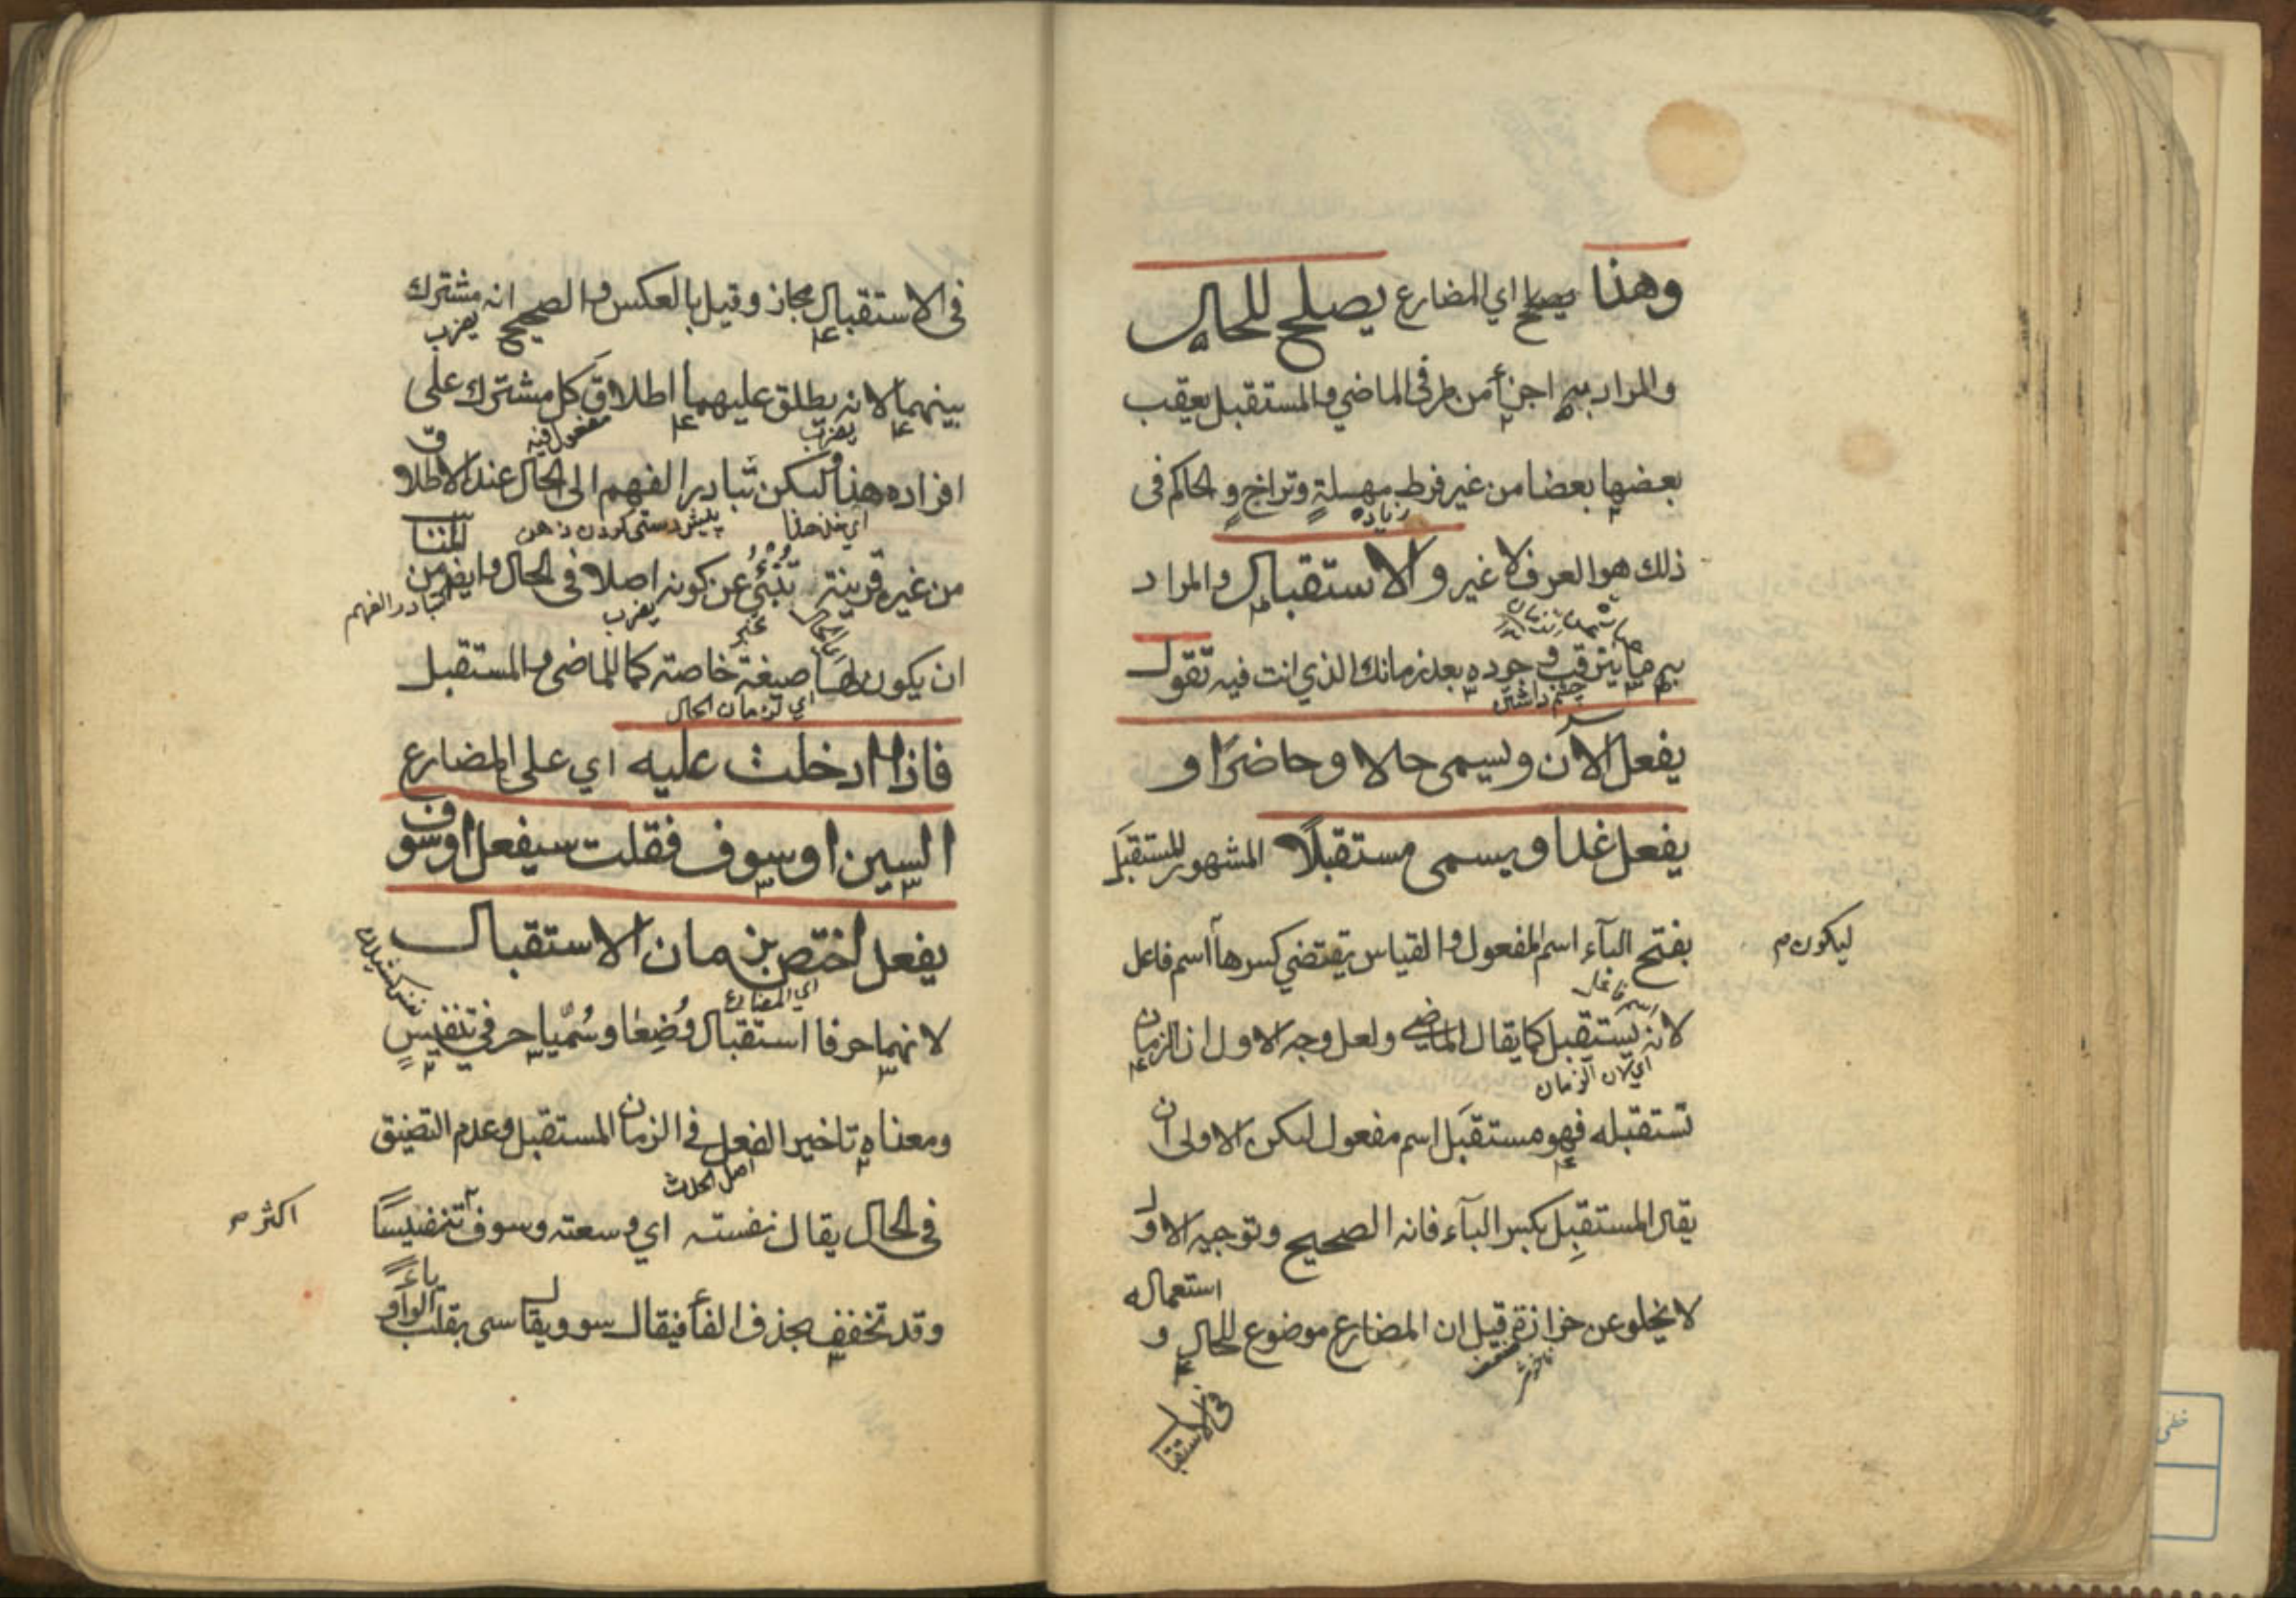 وهذا يصلح اي المضارع يصلح للحال
والمراد به اجزأ من طرفى الماضي والمستقبل يعقب
بعضها بعضا من غير فرط مهلةٍ وتراخٍ و الحاكم فى
زياده
ذلك هو العرف لا غير و الاستقبال والمراد
به ما يترقب وجوده بعد زمانك الذي انت فيه تقول
چشم داشتن
يفعل الآن و يسمى حالا و حاضرًا و
يفعل غدا ويسمى مستقبلًا المشهور للمستقبَل
بفتح البآء اسم المفعول والقياس يقتضي كسرها اسم فاعل
ليكون
اسم فاعل
لانه يستقبل كما يقال الماضي ولعل وجه الاول ان الزمان
اي لان الزمان
تستقبله فهو مستقبَل اسم مفعول لكن الاولى ان
يقال المستقبِل بكسر البآء فانه الصحيح وتوجيه الاول
لا يخلو عن حزازة قيل ان المضارع موضوع للحال و
استعماله
فى الاستقبا
فى الاستقبال مجاز وقيل بالعكس والصحيح انه مشترك
بينهما لانه يطلق عليهما اطلاق كل مشترك على
مفعول فيه
افراده هذا لكن تبادر الفهم الى الحال عند الاطلاق
اي خذ هذا
پيش دستى كردن ذهن
من غير قرينة تُنْبِئُ عن كونه اصلا فى الحال وايضا من
المناسب
تبادر الفهم
ان يكون لها صيغة خاصة كما للماضى والمستقبل
خبر
اي لزمان الحال
فاذا ادخلت عليه اي على المضارع
السين او سوف فقلت سيفعل او سوف
يفعل اختص بزمان الاستقبال
اي المضارع
لانهما حرفا استقبال وُضِعا وسُمِّيا حرفي تنفيسٍ
ومعناه تاخير الفعل فى الزمان المستقبل وعدم التضيق
اصل الحدث
فى الحال يقال نفسته اي وسعته وسوف تنفيسًا
اكثر
وقد تخفف بحذف الفأ فيقال سو ويقال سى بقلب الواو
ياءً